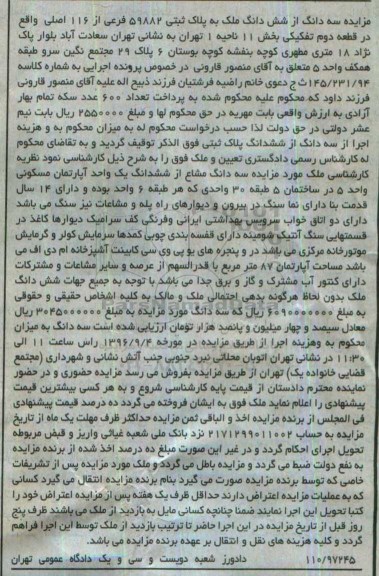 مزایده سه دانگ از شش دانگ ملک به پلاک ثبتی ۵۹۸۸۲ فرعی از ۱۱۶ اصلی واقع
در قطعه دوم تفکیکی بخش ۱۱ ناحیه ۱ تهران به نشانی تهران سعادت آباد بلوار پاک
نژاد ۱۸ متری مطهری کوچه بنفشه کوچه بوستان ۶ پلاک ۲۹ مجتمع نگین سرو طبقه
همکف واحد ۵ متعلق به آقای منصور قارونی در خصوص پرونده اجرایی به شماره کلاسه
۱۴۵/۲۳۱/۹۴ث ج دعوی خانم راضیه فرشتیان فرزند ذبیح اله علیه آقای منصور قارونی
فرزند داود که محکوم علیه محکوم شده به پرداخت تعداد ۶۰۰ عدد سکه تمام بهار
آزادی به ارزش واقعی بابت مهریه در حق محکوم لها و مبلغ ۲۵۵۰۰۰۰ ریال بابت نیم
عشر دولتی در حق دولت لذا حسب درخواست محکوم له به میزان محکوم به و هزینه
اجرا از سه دانگ از ششدانگ پلاک ثبتی فوق الذکر توقیف گردید و به تقاضای محکوم
له کارشناس رسمی دادگستری تعیین و ملک فوق را به شرح ذیل کارشناسی نمود نظریه
کارشناسی ملک مورد مزایده سه دانگ مشاع از ششدانگ یک واحد آپارتمان مسکونی
واحد ۵ در ساختمان ۵ طبقه ۳۰ واحدی که هر طبقه ۶ واحد بوده و دارای ۱۴ سال
قدمت بنا دارای نما سنگ در بیرون و دیوارهای راه پله و مشاعات نیز سنگ می باشد
دارای دو اتاق خواب سرویس بهداشتی ایرانی وفرنگی کف سرامیک دیوارها کاغذ در
قسمتهایی سنگ آنتیک شومینه دارای قفسه بندی چوبی کمدها سرمایش کولر و گرمایش
موتورخانه مرکزی می باشد در و پنجره های یو پی وی سی کابینت آشپزخانه ام دی اف می
باشد مساحت آپارتمان ۸۷ متر مربع با قدرالسهم از عرصه و سایر مشاعات و مشترکات
دارای کنتور آب مشترک و گاز و برق جدا می باشد با توجه به جمیع جهات شش دانگ
ملک بدون لحاظ هرگونه بدهی احتمالی ملک و مالک به کلیه اشخاص حقیقی و حقوقی
به مبلغ ۶۰۹۰۰۰۰۰۰۰ ریال که سه دانگ مورد مزایده به مبلغ ۳۰۴۵۰۰۰۰۰۰ ریال
معادل سیصد و چهار میلیون و پانصد هزار تومان ارزیابی شده است سه دانگ به میزان
محکوم به وهزینه اجرا از طریق مزایده در مورخه ۱۳۹۶/۹/۴ راس ساعت ۱۱ الی
۱۱:۳۰ در نشانی تهران اتوبان محلاتی نبرد جنوبی جنب آتش نشانی و شهرداری (مجتمع
قضایی خانواده یک) تهران از طریق مزایده بفروش می رسد مزایده حضوری و در حضور
نماینده محترم دادستان از قیمت پایه کارشناسی شروع و به هر کسی بیشترین قیمت
پیشنهادی را اعلام نماید ملک فوق به ایشان فروخته می گردد ده درصد قیمت پیشنهادی
فی المجلس از برنده مزایده اخذ و الباقی ثمن مزایده حداکثر ظرف مهلت یک ماه از تاریخ
مزایده به حساب ۲۱۷۱۲۹۹۰۱۱۰۰۲ نزد بانک ملی شعبه غیاثی واریز و قبض مربوطه
تحویل اجرای احکام گردد و در غیر این صورت مبلغ ده درصد اخذ شده از برنده مزایده
به نفع دولت ضبط می گردد و مزایده باطل می گردد و ملک مورد مزایده پس از تشریفات
خاصی که توسط برنده مزایده صورت می گیرد بنام برنده مزایده انتقال می گیرد کسانی
که به عملیات مزایده اعتراض دارند حداقل ظرف یک هفته پس از مزایده اعتراض خود را
کتبا تحویل این اجرا نمایند ضمنا چنانچه کسانی مایل به بازدید از ملک می باشند ظرف پنج
روز قبل از تاریخ مزایده در این اجرا حاضر تا ترتیب بازدید از ملک توسط این اجرا فراهم
گردد و کلیه هزینه های نقل و انتقال بر عهده برنده مزایده می باشد.
۱۱۰/۹۷۲۴۵ دادورز شعبه دویست و سی و یک دادگاه عمومی تهران